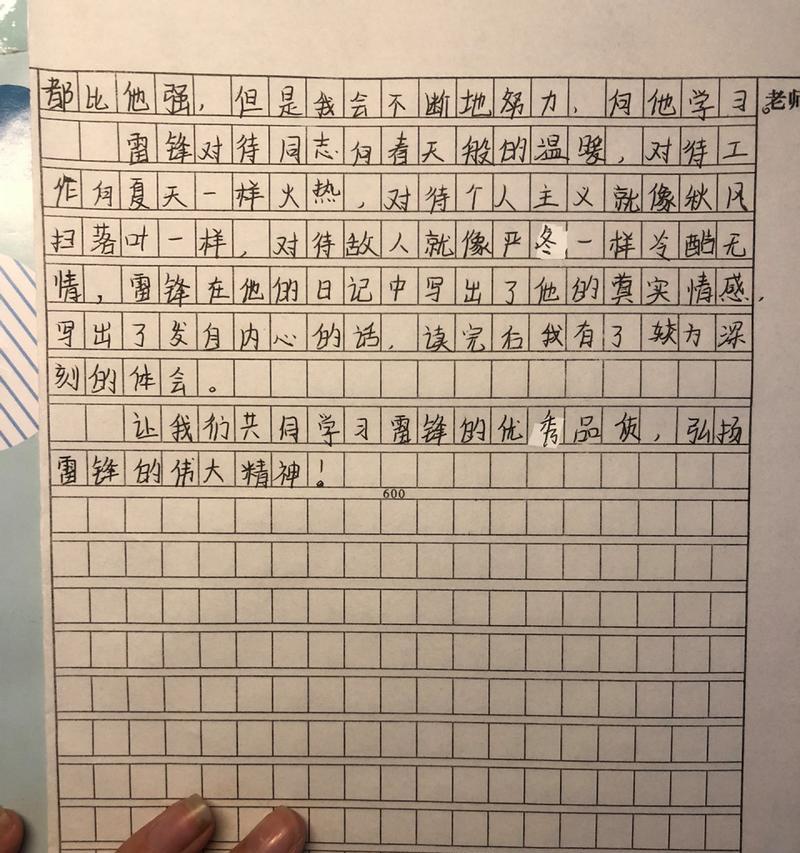 都比他强，但是我会不断地努力，向他学习。
雷锋对待同志有着天般的温暖，对待工
作向夏天一样火热，对待个人主义就像秋风
扫落叶一样，对待敌人就像严冬一样冷酷无
情，雷锋在他的日记中写出了他的真实情感，
写出了发自内心的话，读完后我有了较为深
刻的体会。
让我们共同学习雷锋的优秀品质，弘扬
雷锋的伟大精神！
600
老师